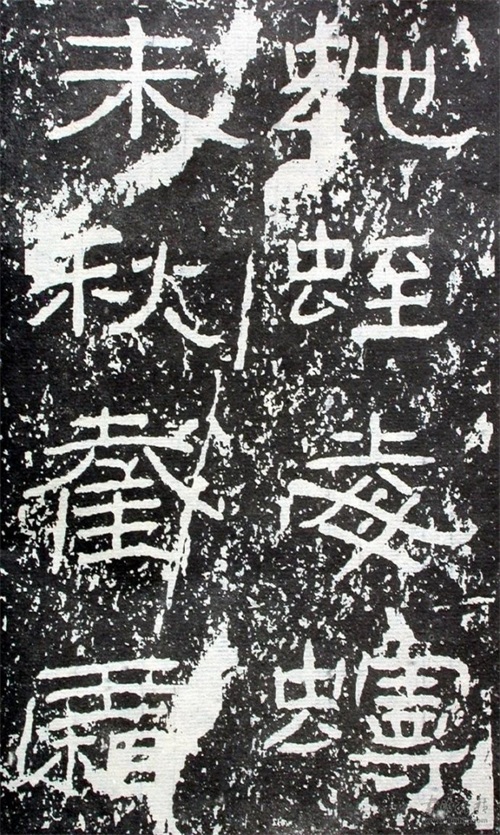 虵蛭毒蟃
未秋截霜